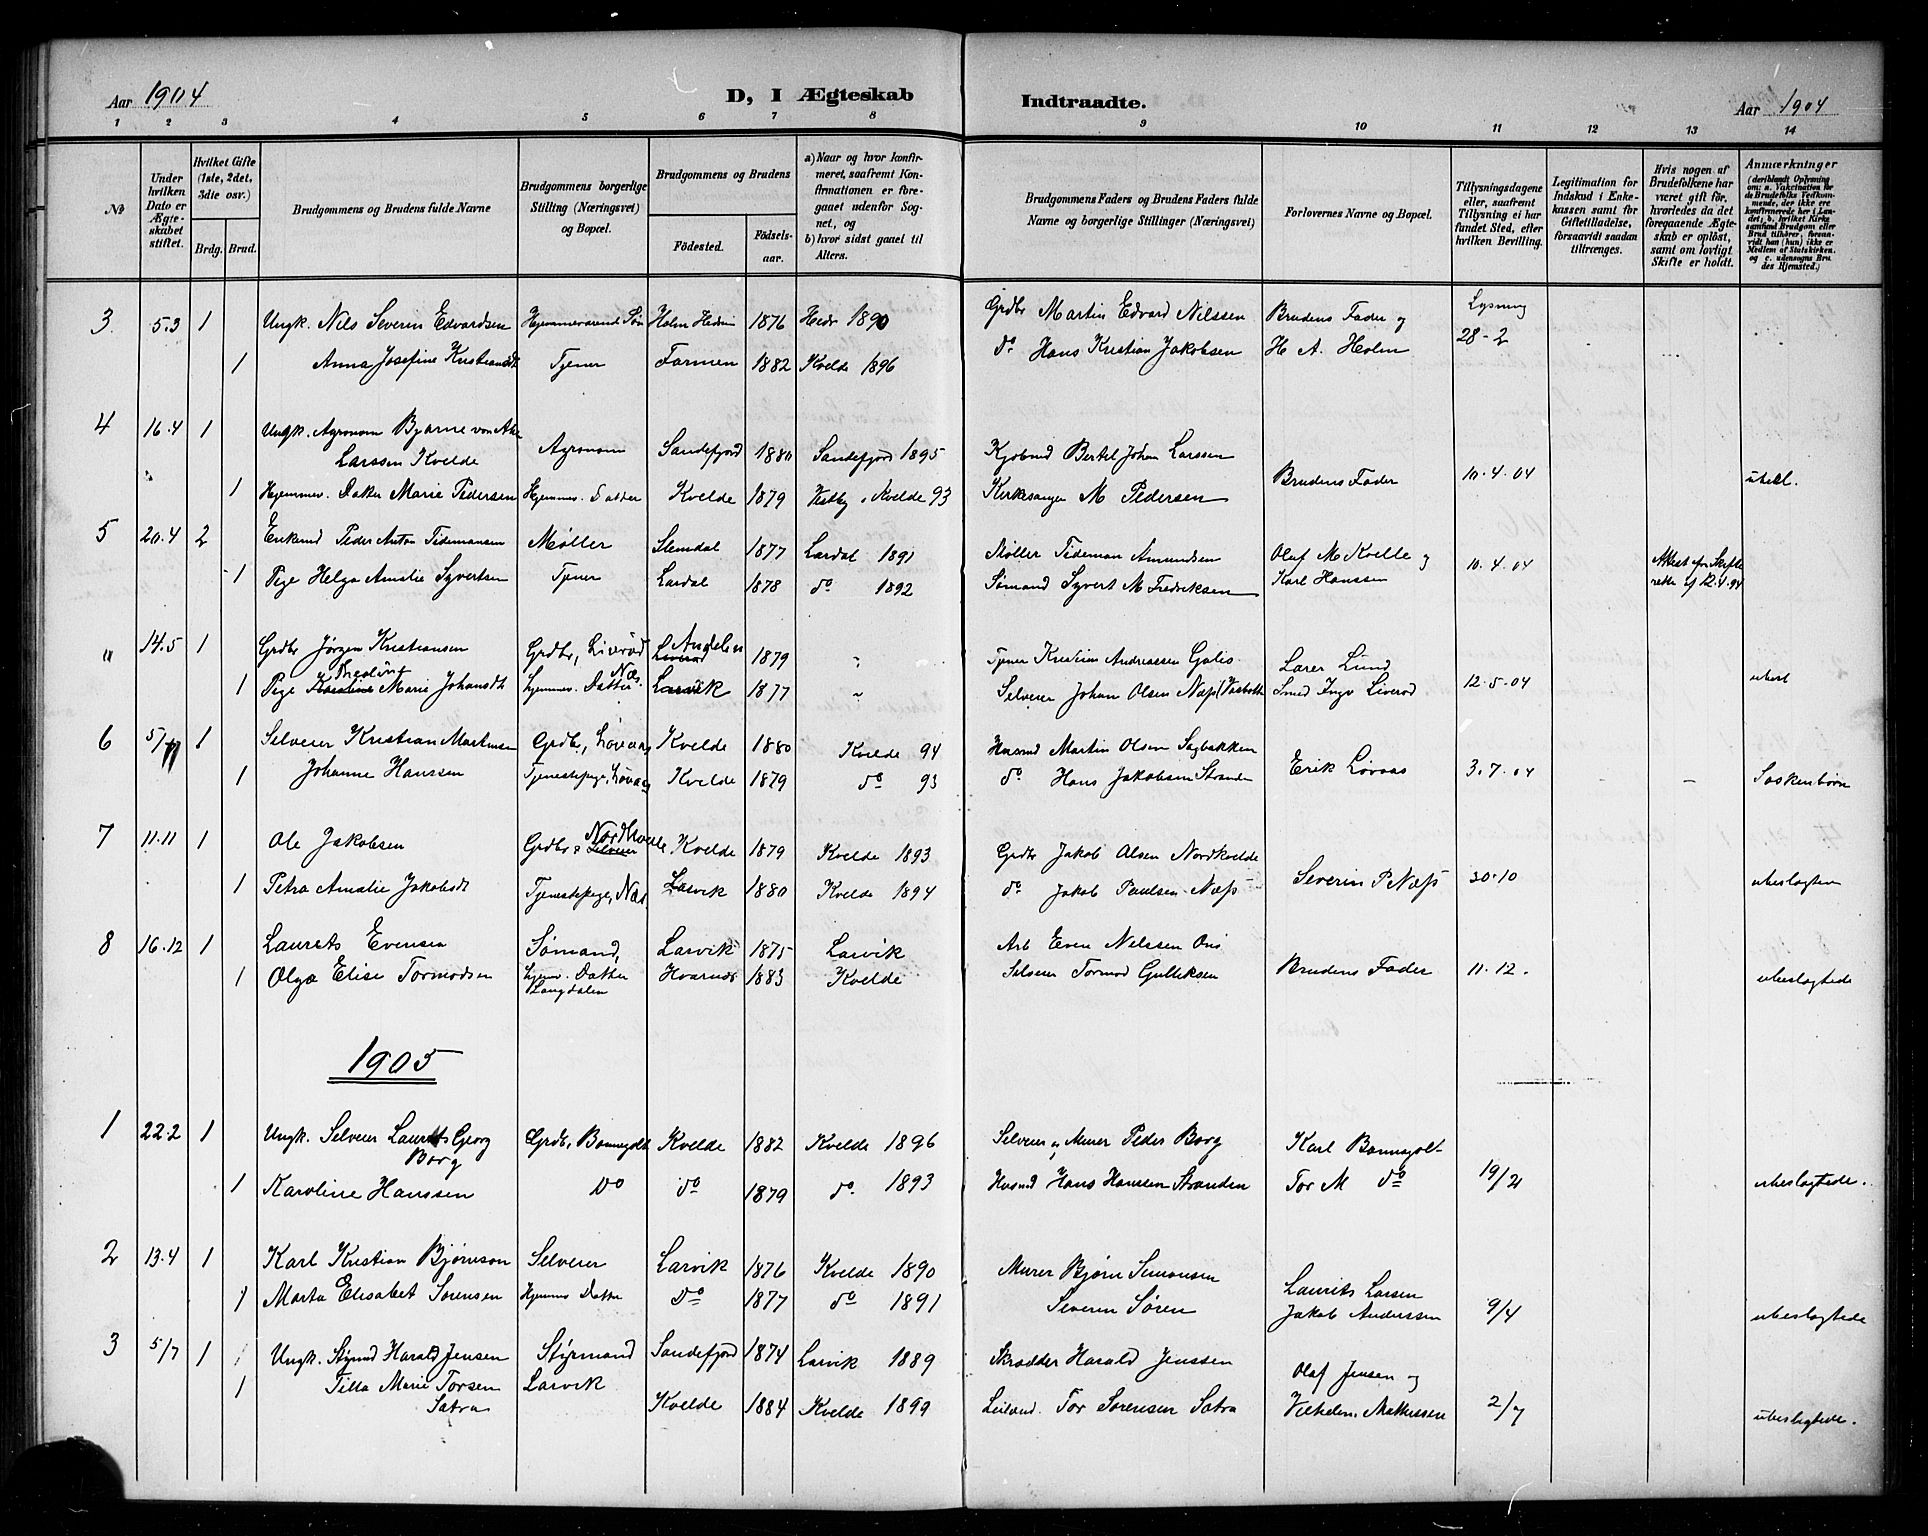 Aar 1904
D, I Ægteskab
Indtraadte.
Aar 1904
1 2 3 4 5 6 7 8 9 10 11 12 13 14
No
Under hvilken Dato er Ægteskabet stiftet.
Hvilket Gifte (1ste, 2det, 3die osv.)
Brdg. Brud.
Brudgommens og Brudens fulde Navne
Brudgommens borgerlige Stilling (Næringsvei) og Bopæl.
Brudgommens og Brudens
Fødested.
Fødselsaar.
a) Naar og hvor konfirmeret, saafremt Konfirmationen er foregaaet udenfor Sognet, og
b) hvor sidst gaaet til Alters.
Brudgommens Faders og Brudens Faders fulde Navne og borgerlige Stillinger (Næringsvei)
Forlovernes Navne og Bopæl.
Tillysningsdagene eller, saafremt Tillysning ei har fundet Sted, efter hvilken Bevilling.
Legitimation for Indskud i Enkekassen samt for Giftetilladelse, forsaavidt saadan tiltrænges.
Hvis nogen af Brudefolkene har været gift før, hvorledes da det foregaaende Ægteskab er opløst, samt om lovligt Skifte er holdt.
Anmærkninger
(deriblandt Oplysning om: a. Vakcination for de Brudefolks Vedkommende, der ikke ere konfirmerede her i Landet; b. hvilket Kirkesamfund Brudgom eller Brud tilhører, forsaavidt han (hun) ikke er Medlem af Statskirken. og c. udensogns Brudes Hjemsted.)
3 5.3 1 Ungk. Nils Severin Edvardsen Hjemmeværende Søn Holm Hedrum 1876 Hedr 1890 Grdbr Martin Edvard Nilssen Brudens Fader og Lysning
1 Anna Josefine Kristiansdt Tjener Farmen 1882 Kvelde 1896 do Hans Kristian Jakobsen H A. Holm 28-2
4 16.4 1 Ungk. Agronom Bjarne von
Larssen Kvelde Agronom Sandefjord 1880 Sandefjord 1895 Kjøbmd Bertel Johan Larssen
1 Hjemmev. Datter Marie Pedersen Hjemmev. Datter Kvelde 1879 Kvelde 93 Kirkesanger M Pedersen Brudens Fader 10.4.04
5 20.4 2 Enkemd Peder Anton Tidemansen Møller Slemdal 1877 Lardal 1891 Møller Tideman Amundsen Olaf M Kvelle og
1 Pige Helga Amalie Syvertsen Tjener Lardal 1878 do 1892 Sømand Syvert M Fredriksen Karl Hanssen 10.4.04 Attest fra Skifteretten
" 14.5 1 Grdbr Jørgen Kristiansen Grdbr, Liverød 1879 " Tjener Kristian Andreassen Lærer Lund
1 Pige Marie Johansdt Hjemmev. Datter Næs. Larvik 1877 " Selveier Johan Olsen Næss Smed Liverød 12.5.04
6 5/7 1 Selveier Kristian Martinsen Grdbr, Løvaas Kvelde 1880 Kvelde 94 Husmd Martin Olsen Sagbakken
1 Johanne Hanssen Tjenestepige, Løvaas Kvelde 1879 do 93 do Hans Jakobsen Stranden Erik Løvaas 3.7.04 - - Søskenbørn
7 11.11 1 Ole Jakobsen Grdbr Nordkvelle Kvelde 1879 Kvelde 1893 Grdbr Jakob Olsen Nordkvelde
1 Petra Amalie Jakobsdt Tjenestepige, Næs. Larvik 1880 Kvelde 1894 do Jakob Paulsen Næss Severin P Næss 30.10 ubeslægtede
8 16.12 1 Laurits Evensen Sømand, Larvik 1875 Larvik Arb Even Nilssen
1 Olga Elise Tormodsen Hjem. Datter Langdalen Hvarnes 1883 Kvelde Selveier Tormod Gulliksen Brudens Fader 11.12. ubeslægtede
1905
1 22.2 1 Ungk. Selveier Laurits Georg Grdbr, Bonnegolt Kvelde 1882 Kvelde 1896 Selveier og Murer Peder Borg Karl Bonnegolt
Borg
1 Karoline Hanssen Do do 1879 do. 1893 Husmd Hans Hanssen Stranden Tor M do 19/2 ubeslægtede.
2 13.4 1 Karl Kristian Bjørnson Selveier Larvik 1876 Kvelde 1890 Murer Bjørn Simonsen Laurits Larsen
1 Marta Elisabet Sørensen Hjemmev Datter Do 1877 do 1891 Severin Søren Jakob Anderssen 9/4 ubeslægtede
3 5/7 1 Ungk. Stymd Harald Jensen Styrmand Sandefjord 1874 Larvik 1889 Skrædder Harald Jenssen Olaf Jensen og
1 Tilla Marie Torsen Larvik
Sætra Kvelde 1884 Kvelde 1899 Leilænd. Tor Sørensen Sætra Vilhelm Mathissen 2/7 ubeslægtede.